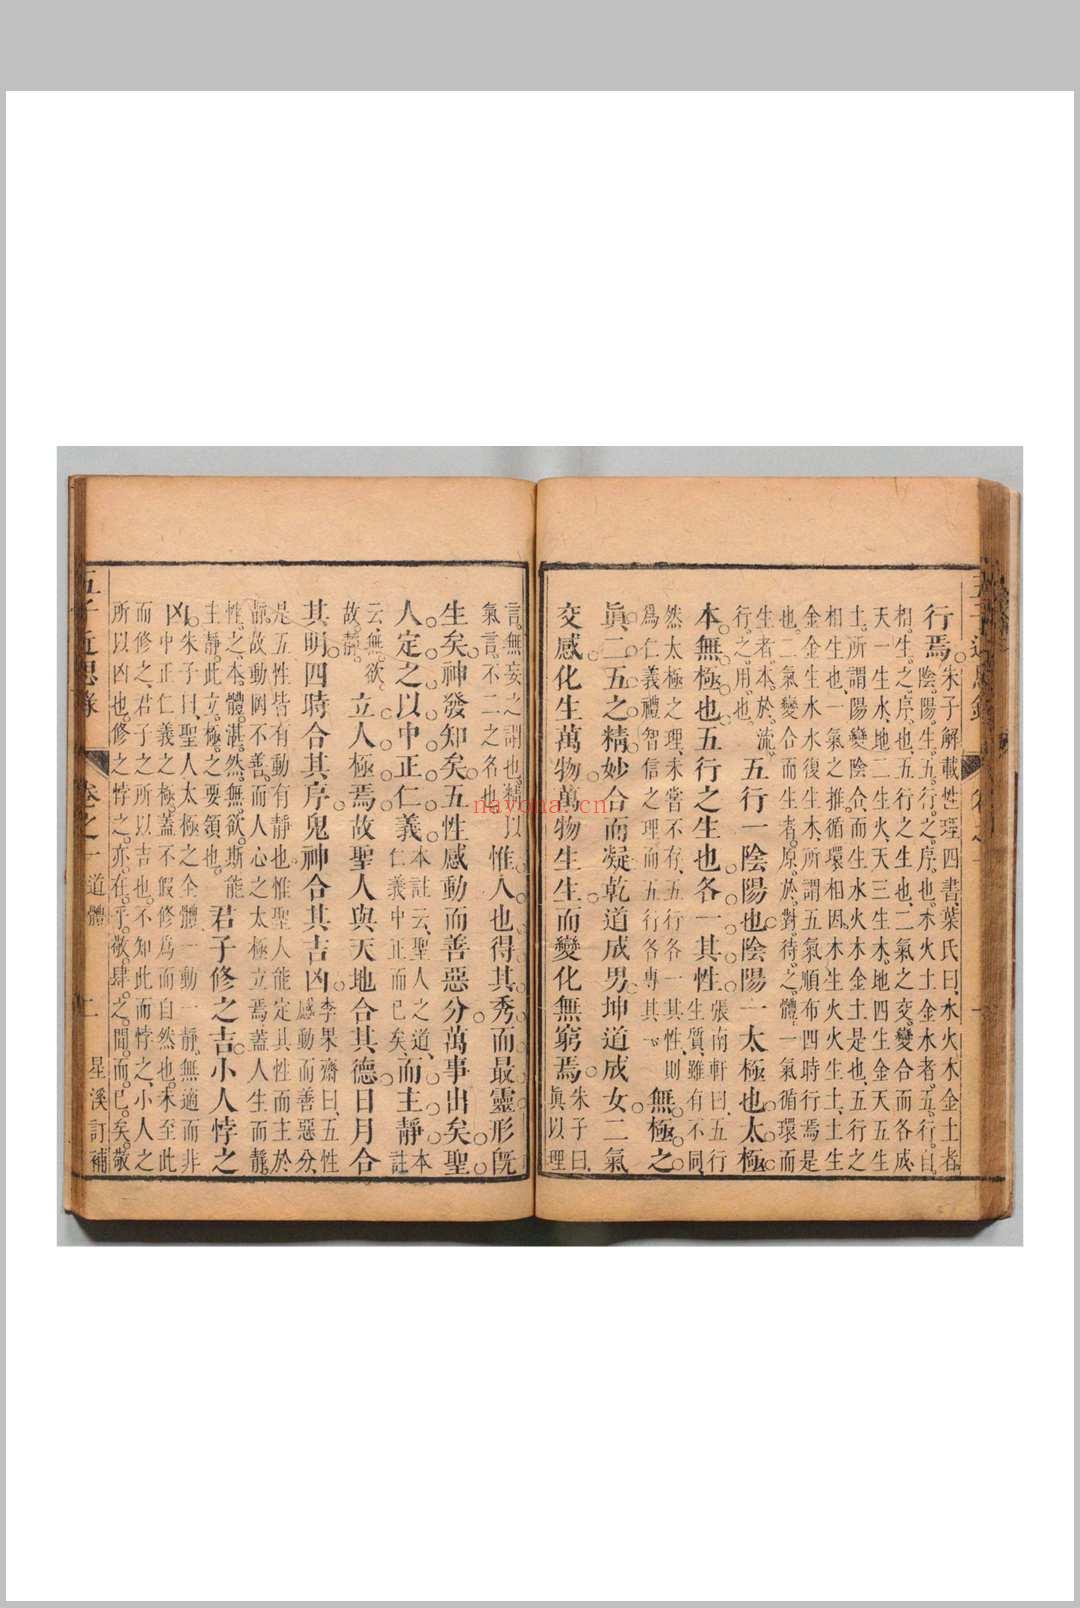 行焉朱子解載性理四書葉氏曰水火木金土者
陰陽生五行之序也木火土金水者五行自
相生之序也五行之生也二氣之交變合而各成
天一生水地二生火天三生木地四生金天五生
土所謂陽變陰合而生水火木金土是也五行之
相生也一氣之推循環相因木生火火生土土生
金金生水水復生木所謂五氣順布四時行焉是
也二氣變合而生者原於對待之體一氣循環而
生者本於流
行之用也
五行一陰陽也陰陽一太極也太極
本無極也五行之生也各一其性
張南軒曰五行
生質雖有不同
然太極之理未嘗不存五行各一其性則
爲仁義禮智信之理而五行各專其一
無極之
眞二五之精妙合而凝乾道成男坤道成女二氣
交感化生萬物萬物生生而變化無窮焉
朱子曰
眞以理
言無妄之謂也精以
氣言不二之名也
惟人也得其秀而最靈形旣
生矣神發知矣五性感動而善惡分萬事出矣聖
人定之以中正仁義
本註云聖人之道
仁義中正而已矣
而主靜
本
註
云無欲
故靜
立人極焉故聖人與天地合其德日月合
其明四時合其序鬼神合其吉凶
李果齋曰五性
感動而善惡分
是五性皆有動有靜也惟聖人能定其性而主於
靜故動罔不善而人心之太極立焉蓋人生而靜
性之本體湛然無欲斯能
主靜此立極之要領也
君子修之吉小人悖之
凶
朱子曰聖人太極之全體一動一靜無適而非
中正仁義之極蓋不假修爲而自然也未至此
而修之君子之所以吉也不知此而悖之小人之
所以凶也修之悖之亦在乎敬肆之閒而已矣敬
五子近思錄 卷之一 道體 二 星溪訂補
nayona.cn